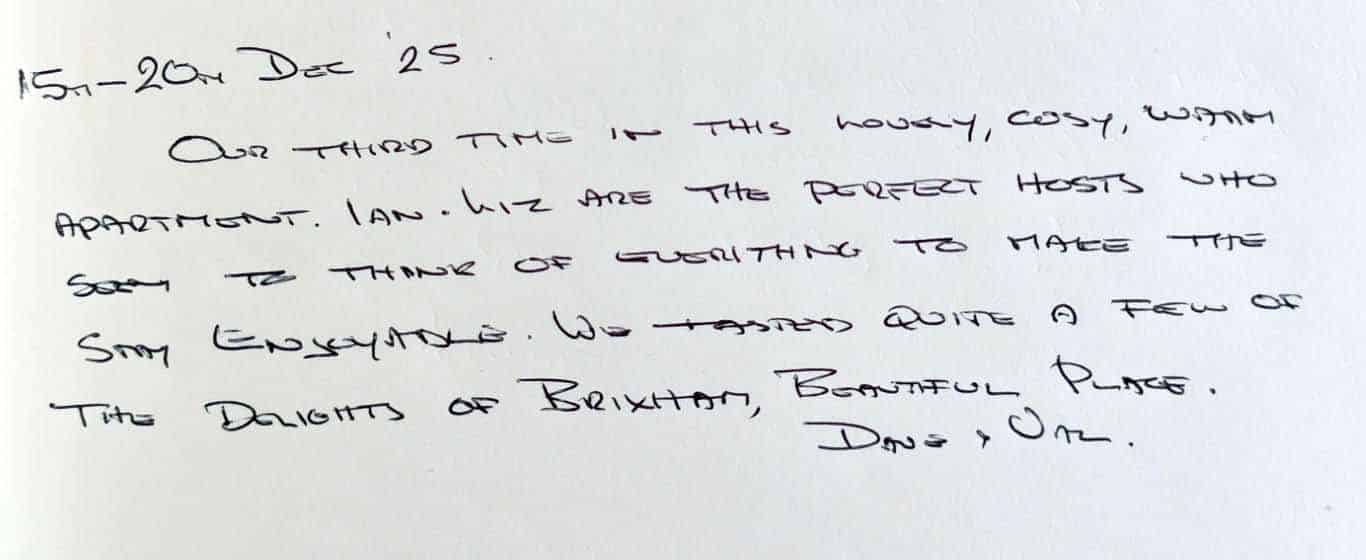 15TH-20TH DEC '25.
OUR THIRD TIME IN THIS LOVELY, COSY, WARM
APARTMENT. IAN & LIZ ARE THE PERFECT HOSTS WHO
SEEM TO THINK OF EVERYTHING TO MAKE THE
STAY ENJOYABLE. WE TASTED QUITE A FEW OF
THE DELIGHTS OF BRIXHAM, BEAUTIFUL PLACE.
DAVE & VAL.